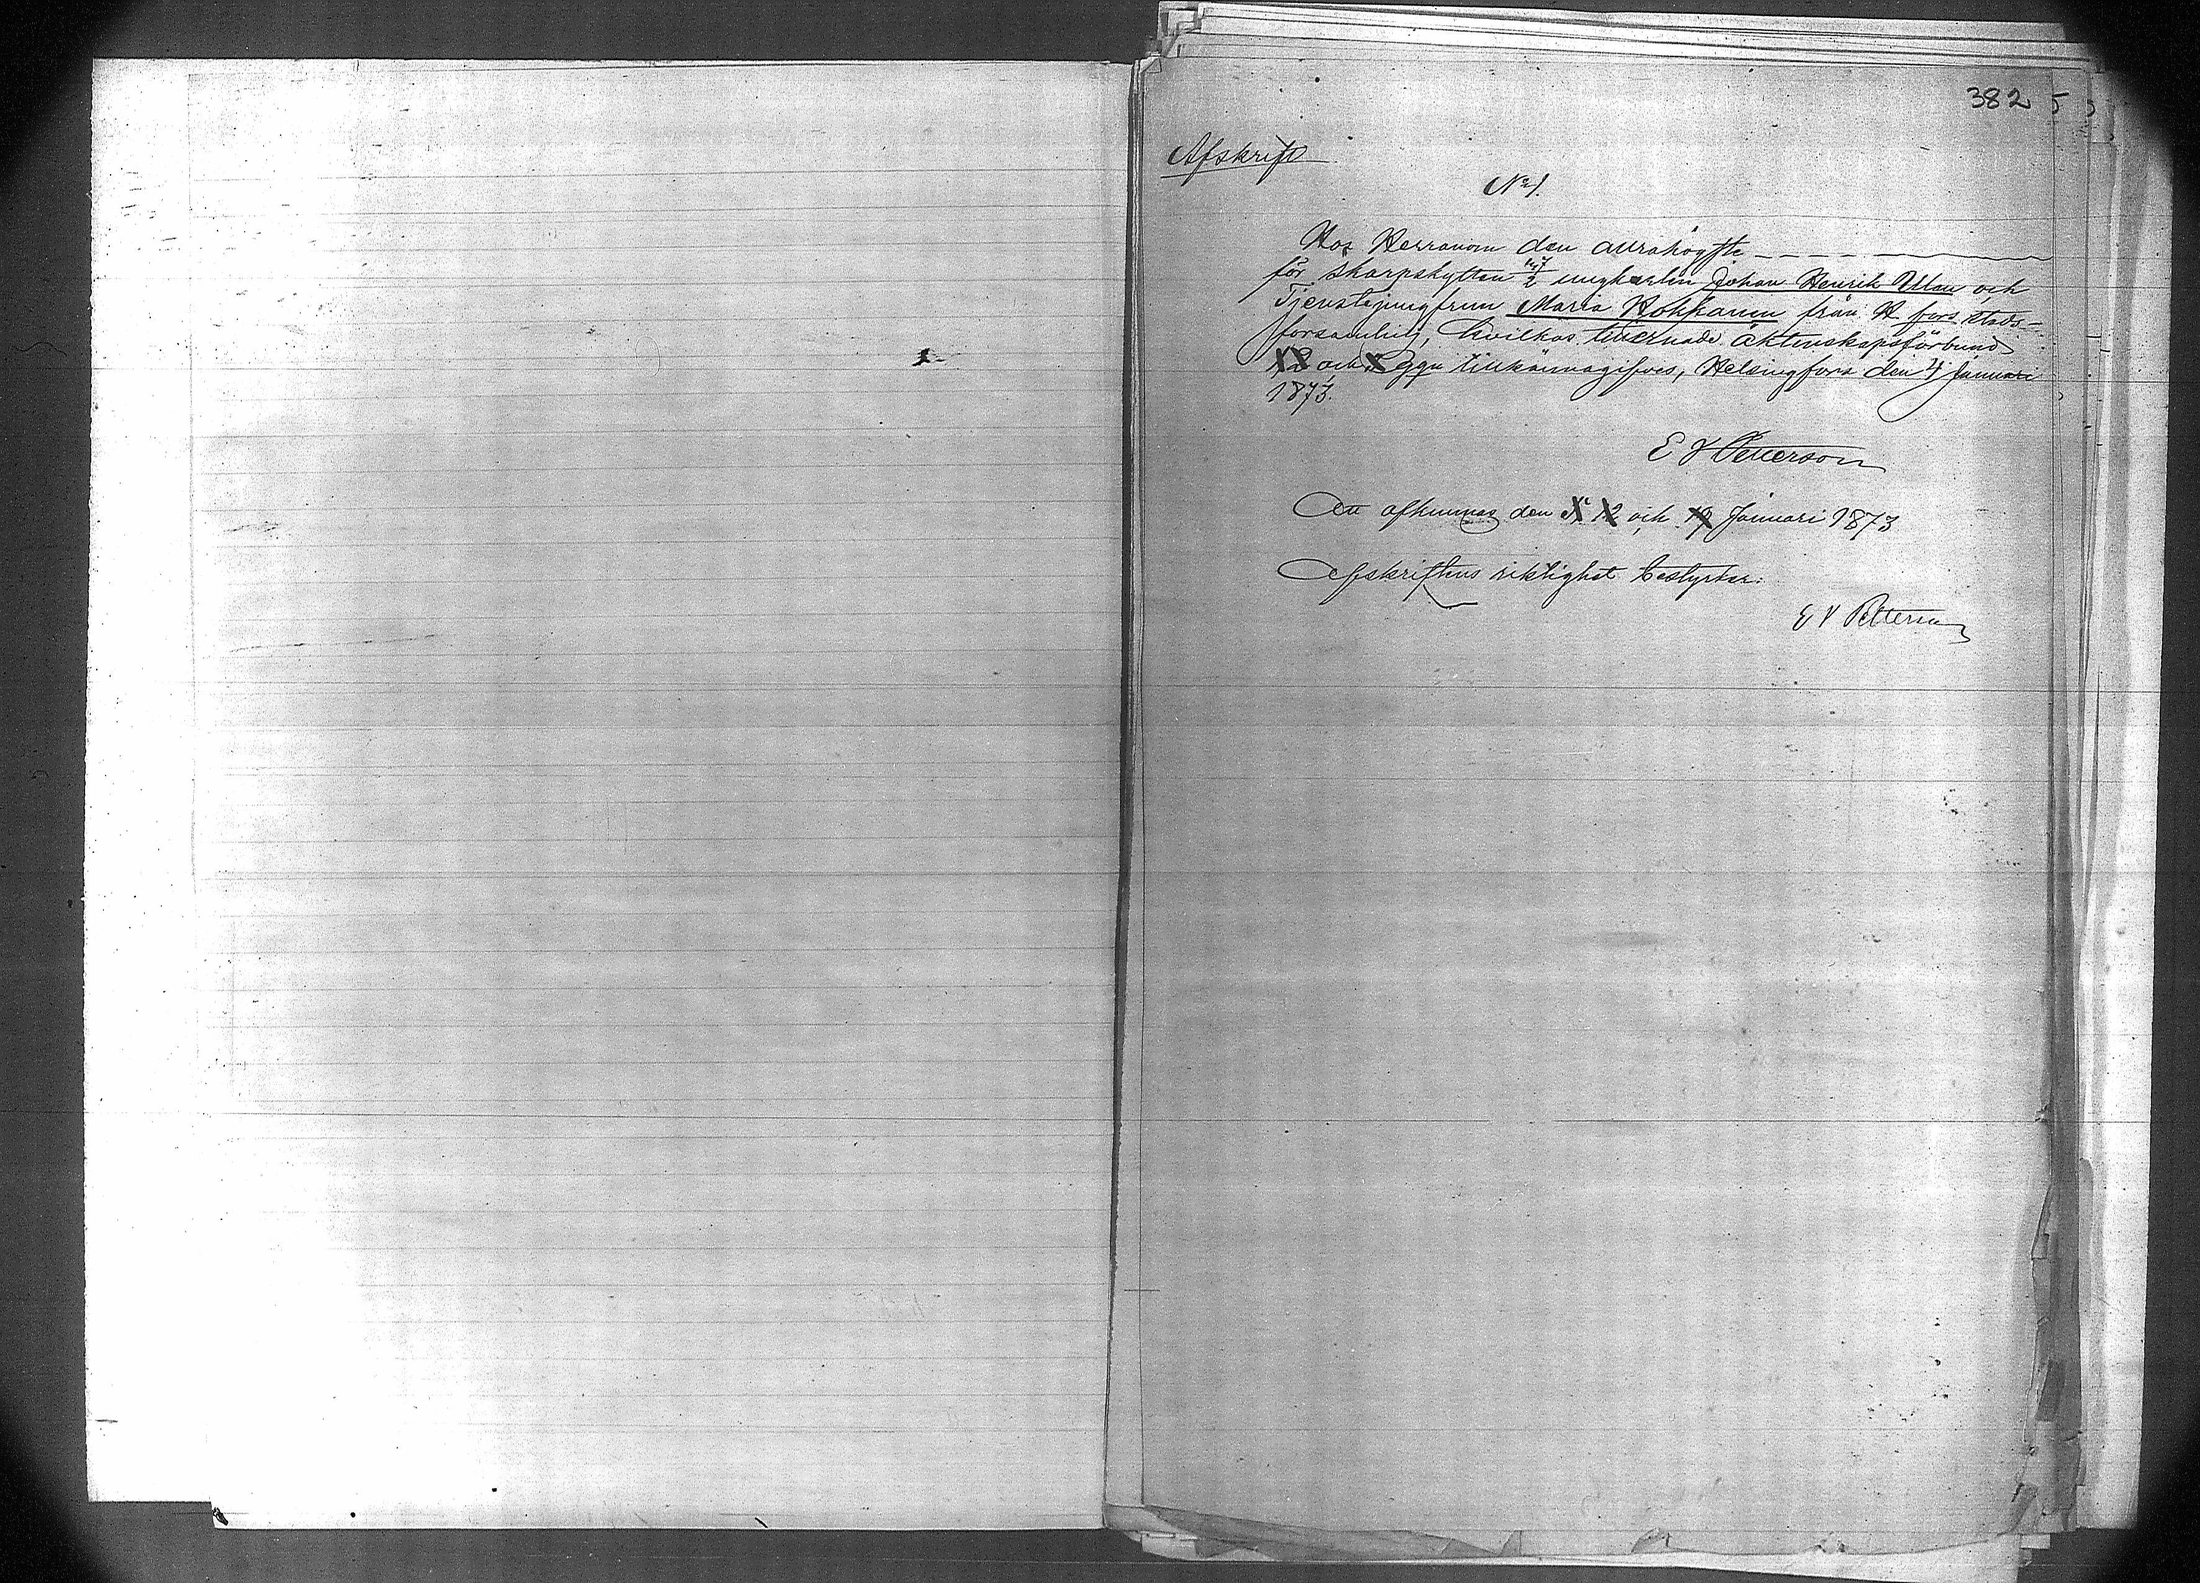 382
Afskrift
No 1.
Hos Herranom den allrahögste
för skarpskytten 147/2 ungkarlen Johan Henrik Ullan och
Tjenstejungfrun Maria Kohkanen från H fors stads-
församling, hvilkas tillernade äktenskapsförbund
och ggn tillkännagifves, Helsingfors den 4 Januari
1873.
E V Petterson
Att afkunnas den 5 12 och 19 Januari 1873
Afskriftens riktighet bestyrker:
E V Petterson